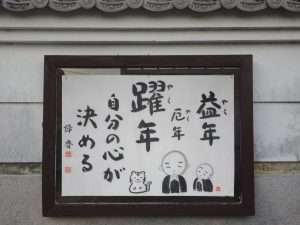 益年
やく
厄年
やく
躍年
やく
自分の心が
決める